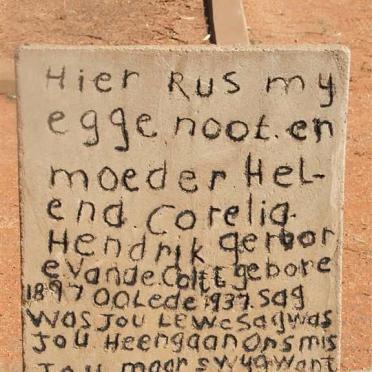 Hier RUS my
egge noot. en
moeder Hel-
end. Corelia.
Hendrik gerbor
e Vande. Coltt gebore
1897 OOLede 1937. Sag
was Jou Lewe Sag was
Jou Heengaan Ons mis
Jou maar swyg want